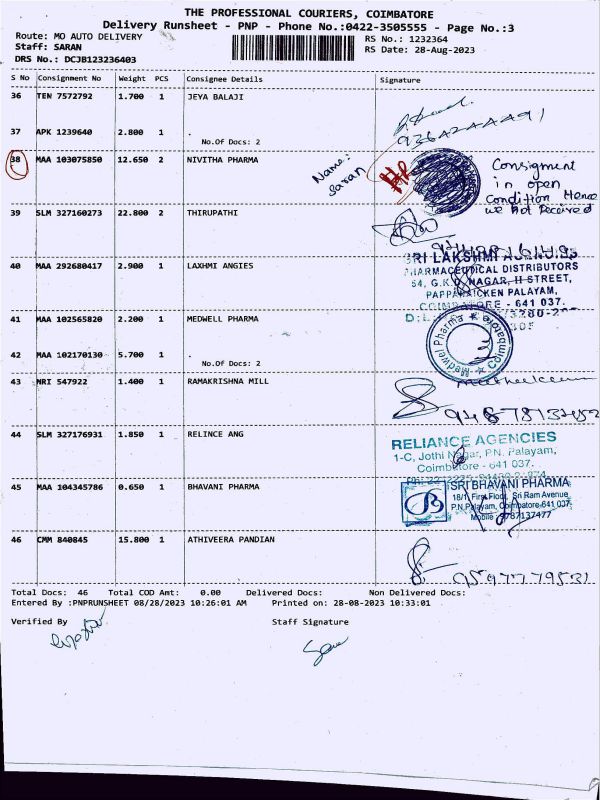 THE PROFESSIONAL COURIERS, COIMBATORE
Delivery Runsheet - PNP - Phone No.:0422-3505555 - Page No.:3
Route: MO AUTO DELIVERY
RS No.: 1232364
Staff: SARAN
RS Date: 28-Aug-2023
DRS No.: DCJB123236403
S No Consignment No Weight PCS Consignee Details Signature
36 TEN 7572792 1.700 1 JEYA BALAJI
37 APK 1239640 2.800 1 .
No.Of Docs: 2
38 MAA 103075850 12.650 2 NIVITHA PHARMA
Name:
Saran
Consignment
in open
Condition Hence
we Not Received
39 SLM 327160273 22.800 2 THIRUPATHI
40 MAA 292680417 2.900 1 LAXHMI ANGIES
SRI LAKSHMI
PHARMACEUTICAL DISTRIBUTORS
54, G.K.D. NAGAR, H STREET,
PAPPANAICKEN PALAYAM,
COIMBATORE - 641 037.
41 MAA 102565820 2.200 1 MEDWELL PHARMA
Medwel Pharma ★ Coimbatore ★
42 MAA 102170130 5.700 1 .
No.Of Docs: 2
43 NRI 547922 1.400 1 RAMAKRISHNA MILL
44 SLM 327176931 1.850 1 RELINCE ANG
RELIANCE AGENCIES
1-C, Jothi Nagar, P.N. Palayam,
Coimbatore - 641 037.
45 MAA 104345786 0.650 1 BHAVANI PHARMA
SRI BHAVANI PHARMA
18/1, First Floor, Sri Ram Avenue
P.N.Palayam, Coimbatore-641 037
Mobile : 9787137477
46 CMM 840845 15.800 1 ATHIVEERA PANDIAN
9597779531
Total Docs: 46 Total COD Amt: 0.00 Delivered Docs: Non Delivered Docs:
Entered By :PNPRUNSHEET 08/28/2023 10:26:01 AM Printed on: 28-08-2023 10:33:01
Verified By Staff Signature